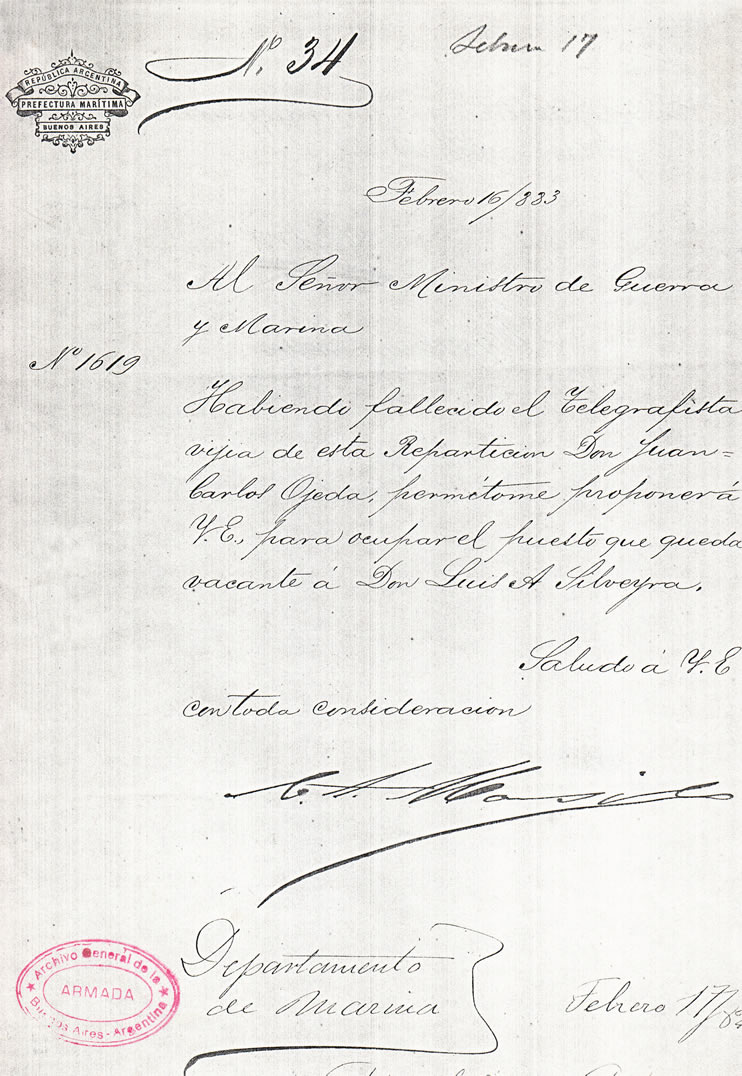 Nº 34
Febrero 17
REPÚBLICA ARGENTINA
PREFECTURA MARÍTIMA
BUENOS AIRES
Febrero 16/883
Al Señor Ministro de Guerra
y Marina
Nº 1619
Habiendo fallecido el Telegrafista
vijia de esta Reparticion Don Juan=
Carlos Ojeda, permítome proponer á
V.E., para ocupar el puesto que queda
vacante á Don Luis A Silveyra.
Saludo á V.E
con toda consideracion
Departamento
de Marina
Febrero 17/
Archivo General de la
ARMADA
Buenos Aires - Argentina